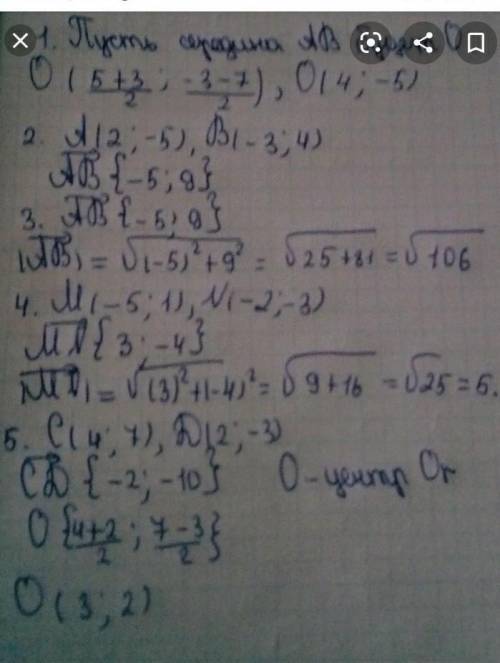 1. Пусть середина АВ О
О ( 5+3/2 ; -3-7/2 ), О(4; -5)
2. А(2; -5), В(-3; 4)
АВ {-5; 9}
3. АВ {-5; 9}
|АВ| = √(-5)²+9² = √25+81 = √106
4. М(-5; 1), N(-2; -3)
MN {3; -4}
MN| = √(3)²+(-4)² = √9+16 = √25 = 5.
5. С(4; 7), D(2; -3)
CD {-2; -10} О - центр Ог
О {4+2/2 ; 7-3/2}
О (3; 2)